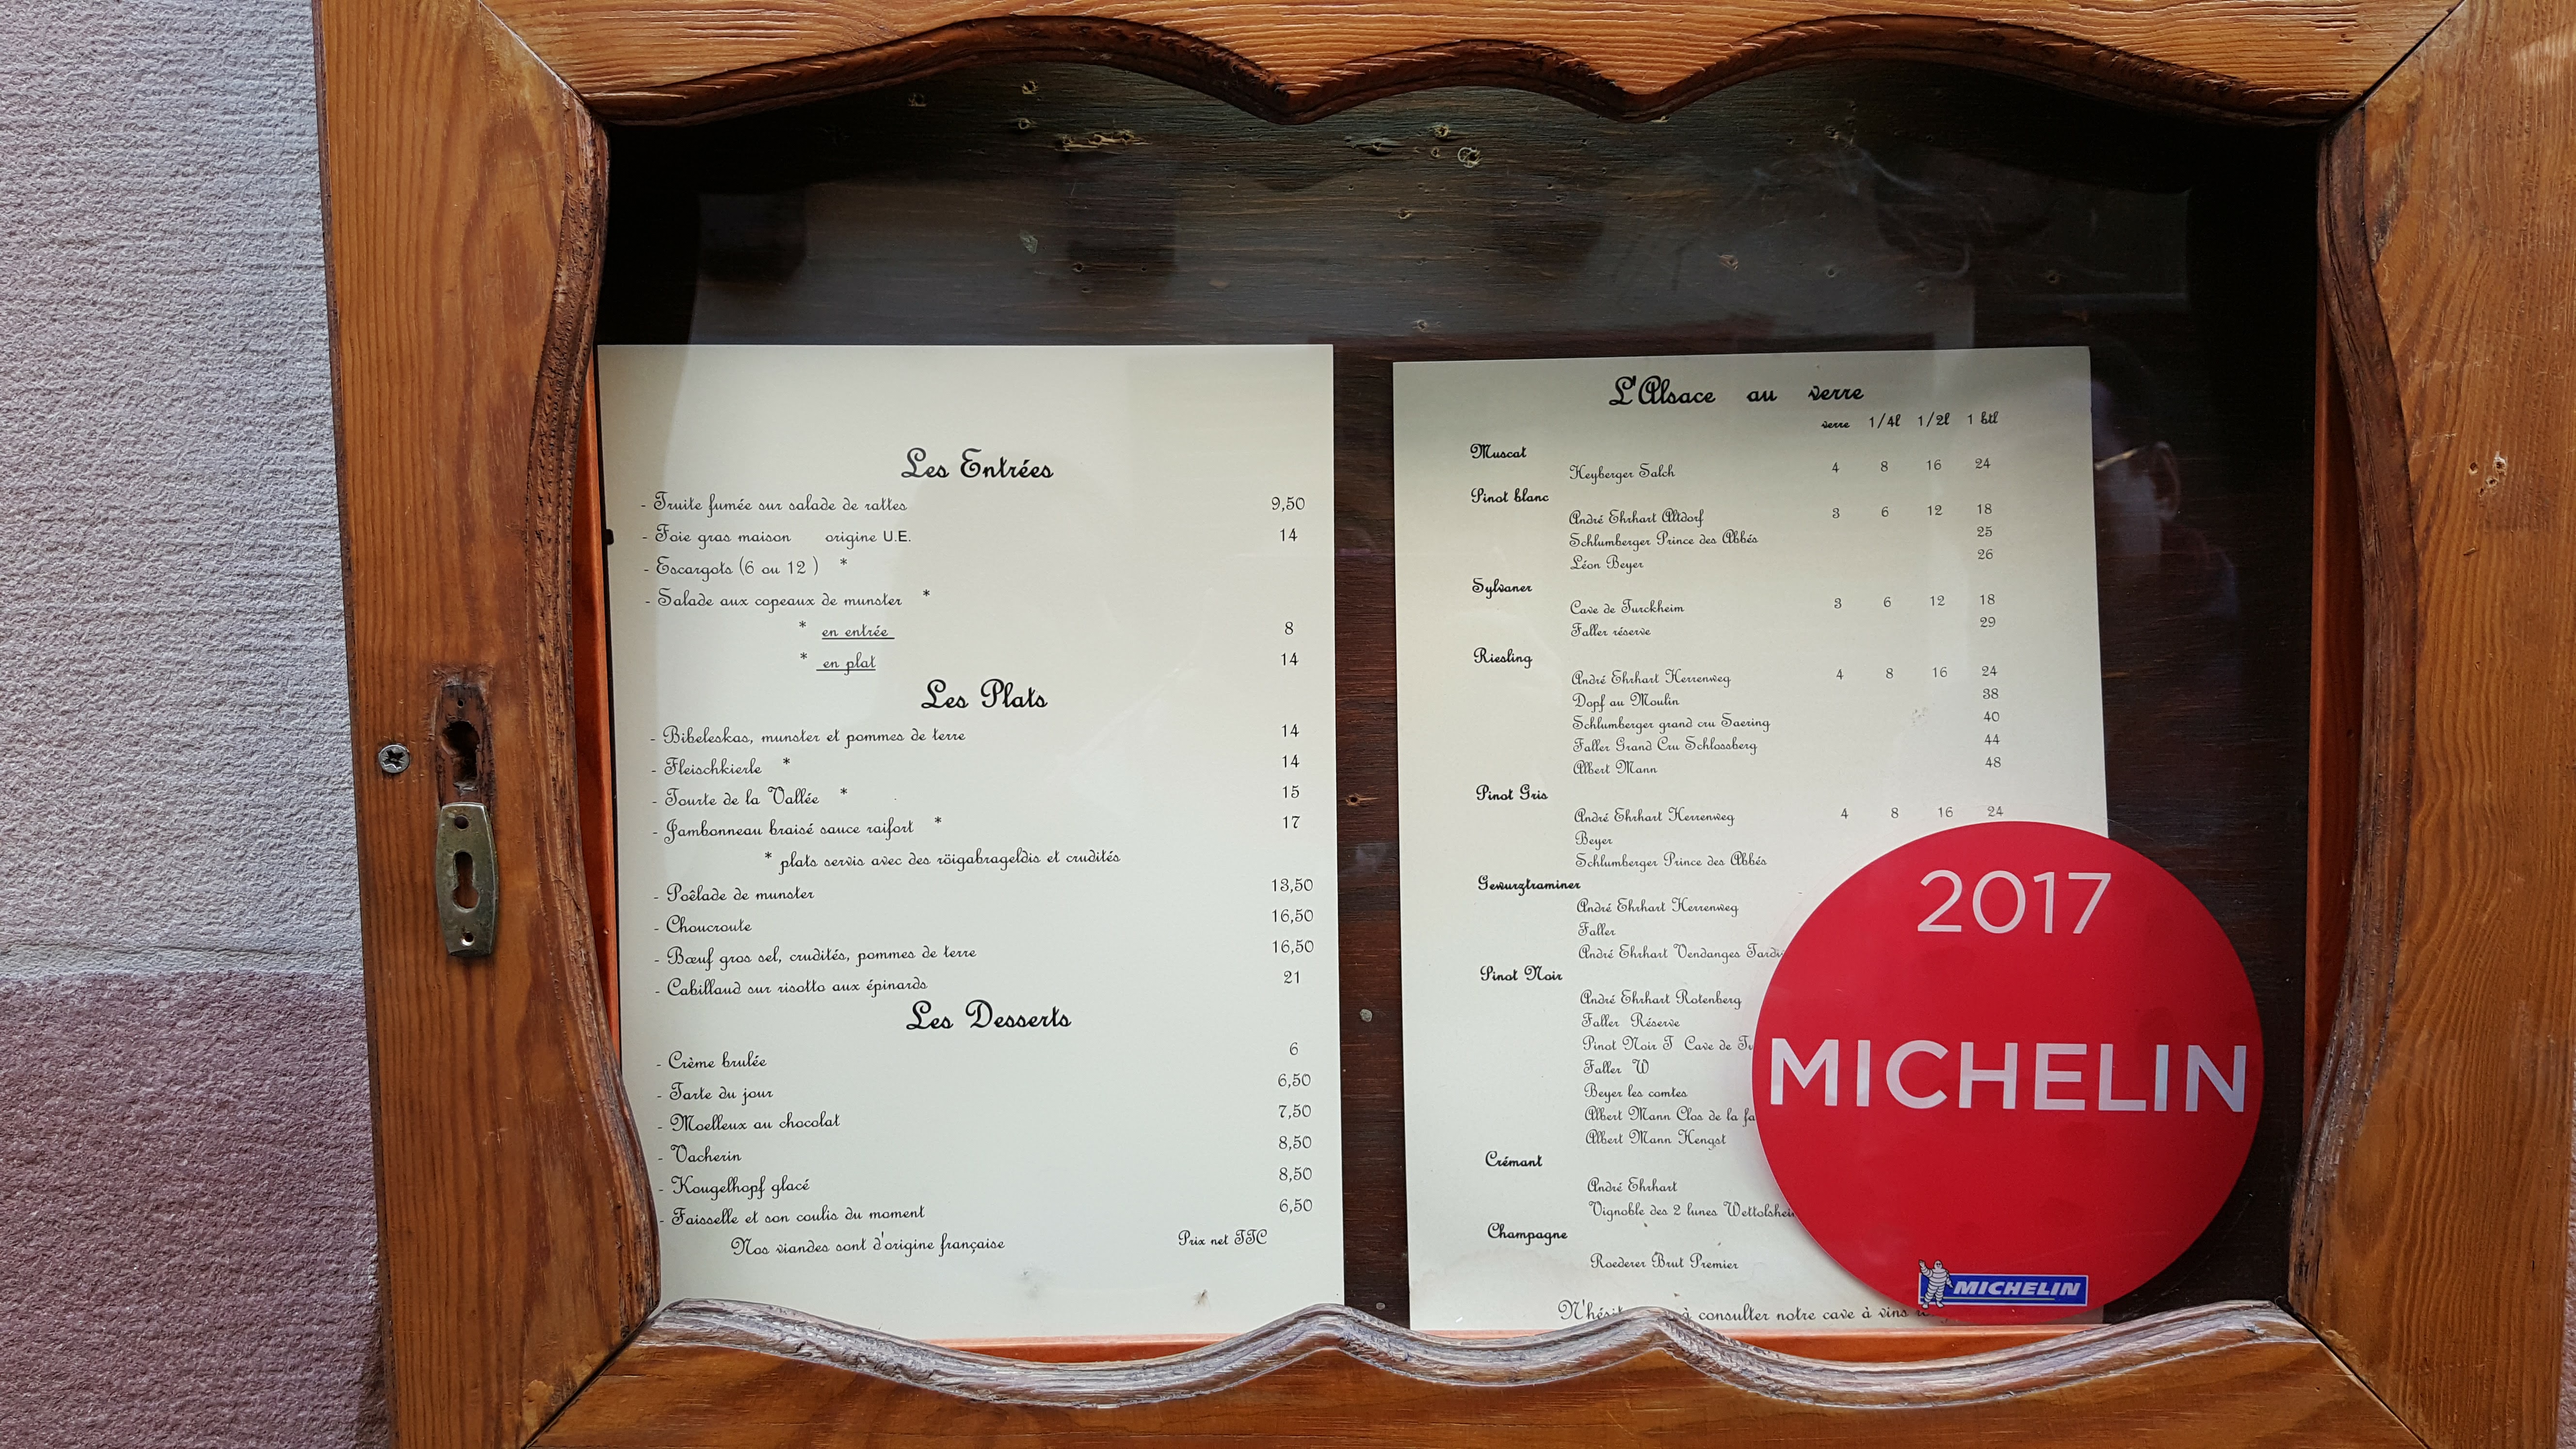 Les Entrées
- Truite fumée sur salade de rattes 9,50
- Foie gras maison origine U.E. 14
- Escargots (6 ou 12 ) *
- Salade aux copeaux de munster *
* en entrée 8
* en plat 14
Les Plats
- Bibeleskas, munster et pommes de terre 14
- Fleischkierle * 14
- Tourte de la Vallée * 15
- Jambonneau braisé sauce raifort * 17
* plats servis avec des röigabrageldis et crudités
- Poêlade de munster 13,50
- Choucroute 16,50
- Bœuf gros sel, crudités, pommes de terre 16,50
- Cabillaud sur risotto aux épinards 21
Les Desserts
- Crème brulée 6
- Tarte du jour 6,50
- Moelleux au chocolat 7,50
- Vacherin 8,50
- Kougelhopf glacé 8,50
- Faisselle et son coulis du moment 6,50
Nos viandes sont d'origine française Prix net TTC
L'Alsace au verre
verre 1/4l 1/2l 1 btl
Muscat
Heyberger Salch 4 8 16 24
Pinot blanc
André Ehrhart Altdorf 3 6 12 18
Schlumberger Prince des Abbés 25
Léon Beyer 26
Sylvaner
Cave de Turckheim 3 6 12 18
Faller réserve 29
Riesling
André Ehrhart Herrenweg 4 8 16 24
Dopf au Moulin 38
Schlumberger grand cru Saering 40
Faller Grand Cru Schlossberg 44
Albert Mann 48
Pinot Gris
André Ehrhart Herrenweg 4 8 16 24
Beyer
Schlumberger Prince des Abbés
Gewurztraminer
André Ehrhart Herrenweg
Faller
André Ehrhart Vendanges
Pinot Noir
André Ehrhart Rotenberg
Faller Réserve
Pinot Noir T Cave de
Faller W
Beyer les comtes
Albert Mann Clos de la
Albert Mann Hengst
Crémant
André Ehrhart
Vignoble des 2 lunes
Champagne
Roederer Brut Premier
à consulter notre cave à vins
2017
MICHELIN
MICHELIN